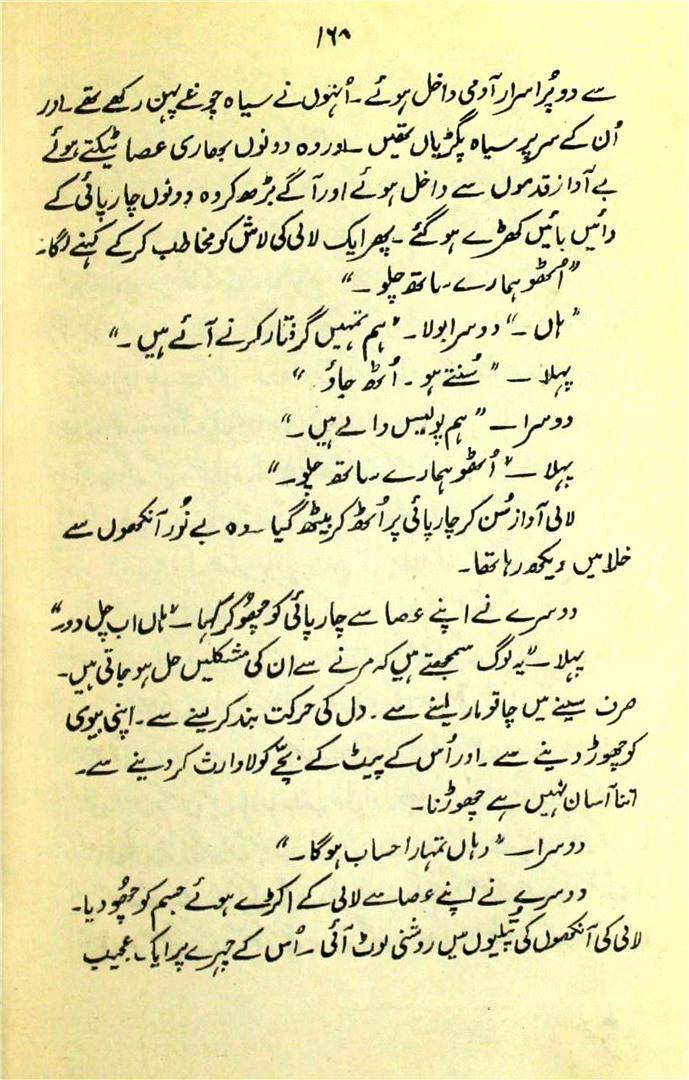 ۱۶۸
سے دو پُراسرار آدمی داخل ہوئے۔ اُنہوں نے سیاہ چوغے پہن رکھے تھے۔ اور
اُن کے سر پر سیاہ پگڑیاں تھیں۔ اور وہ دونوں بھاری عصا ٹیکتے ہوئے
بے آواز قدموں سے داخل ہوئے اور آگے بڑھ کر وہ دونوں چارپائی کے
دائیں بائیں کھڑے ہو گئے۔ پھر ایک لالی کی لاش کو مخاطب کر کے کہنے لگا۔
"اُٹھو ہمارے ساتھ چلو۔"
"ہاں۔" دوسرا بولا۔ "ہم تمہیں گرفتار کرنے آئے ہیں۔"
پہلا — "سُنتے ہو۔ اُٹھ جاؤ"
دوسرا — "ہم پولیس والے ہیں۔"
پہلا — "اُٹھو ہمارے ساتھ چلو۔"
لالی آواز سُن کر چارپائی پر اُٹھ کر بیٹھ گیا۔ وہ بے نُور آنکھوں سے
خلا میں دیکھ رہا تھا۔
دوسرے نے اپنے عصا سے چارپائی کو چھُو کر کہا۔ "ہاں اب چل دور"
پہلا — "یہ لوگ سمجھتے ہیں کہ مرنے سے ان کی مشکلیں حل ہو جاتی ہیں۔
صرف سینے میں چاقو مار لینے سے۔ دل کی حرکت بند کر لینے سے۔ اپنی بیوی
کو چھوڑ دینے سے۔ اور اُس کے پیٹ کے بچّے کو لاوارث کر دینے سے۔
اتنا آسان نہیں ہے چھوڑنا۔
دوسرا — "وہاں تمہارا حساب ہوگا۔"
دوسرے نے اپنے عصا سے لالی کے اکڑے ہوئے جسم کو چھُو دیا۔
لالی کی آنکھوں کی پُتلیوں میں روشنی لوٹ آئی۔ اُس کے چہرے پر ایک عجیب